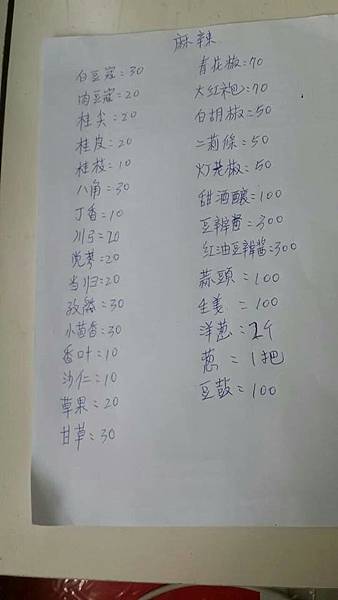 麻辣
白豆寇:30
肉豆寇:20
桂尖:20
桂皮:20
桂枝:10
八角:30
丁香=10
川弓=20
党蔘=20
当归=20
孜然:30
小茴香:30
香叶=10
沙仁=10
草果=20
甘草:30
青花椒=70
大红袍=70
白胡椒=50
二莉條=50
灯笼椒=50
甜酒釀=100
豆瓣醬=300
红油豆瓣醬=300
蒜頭=100
生姜=100
洋蔥=2个
蔥=1把
豆鼓=100